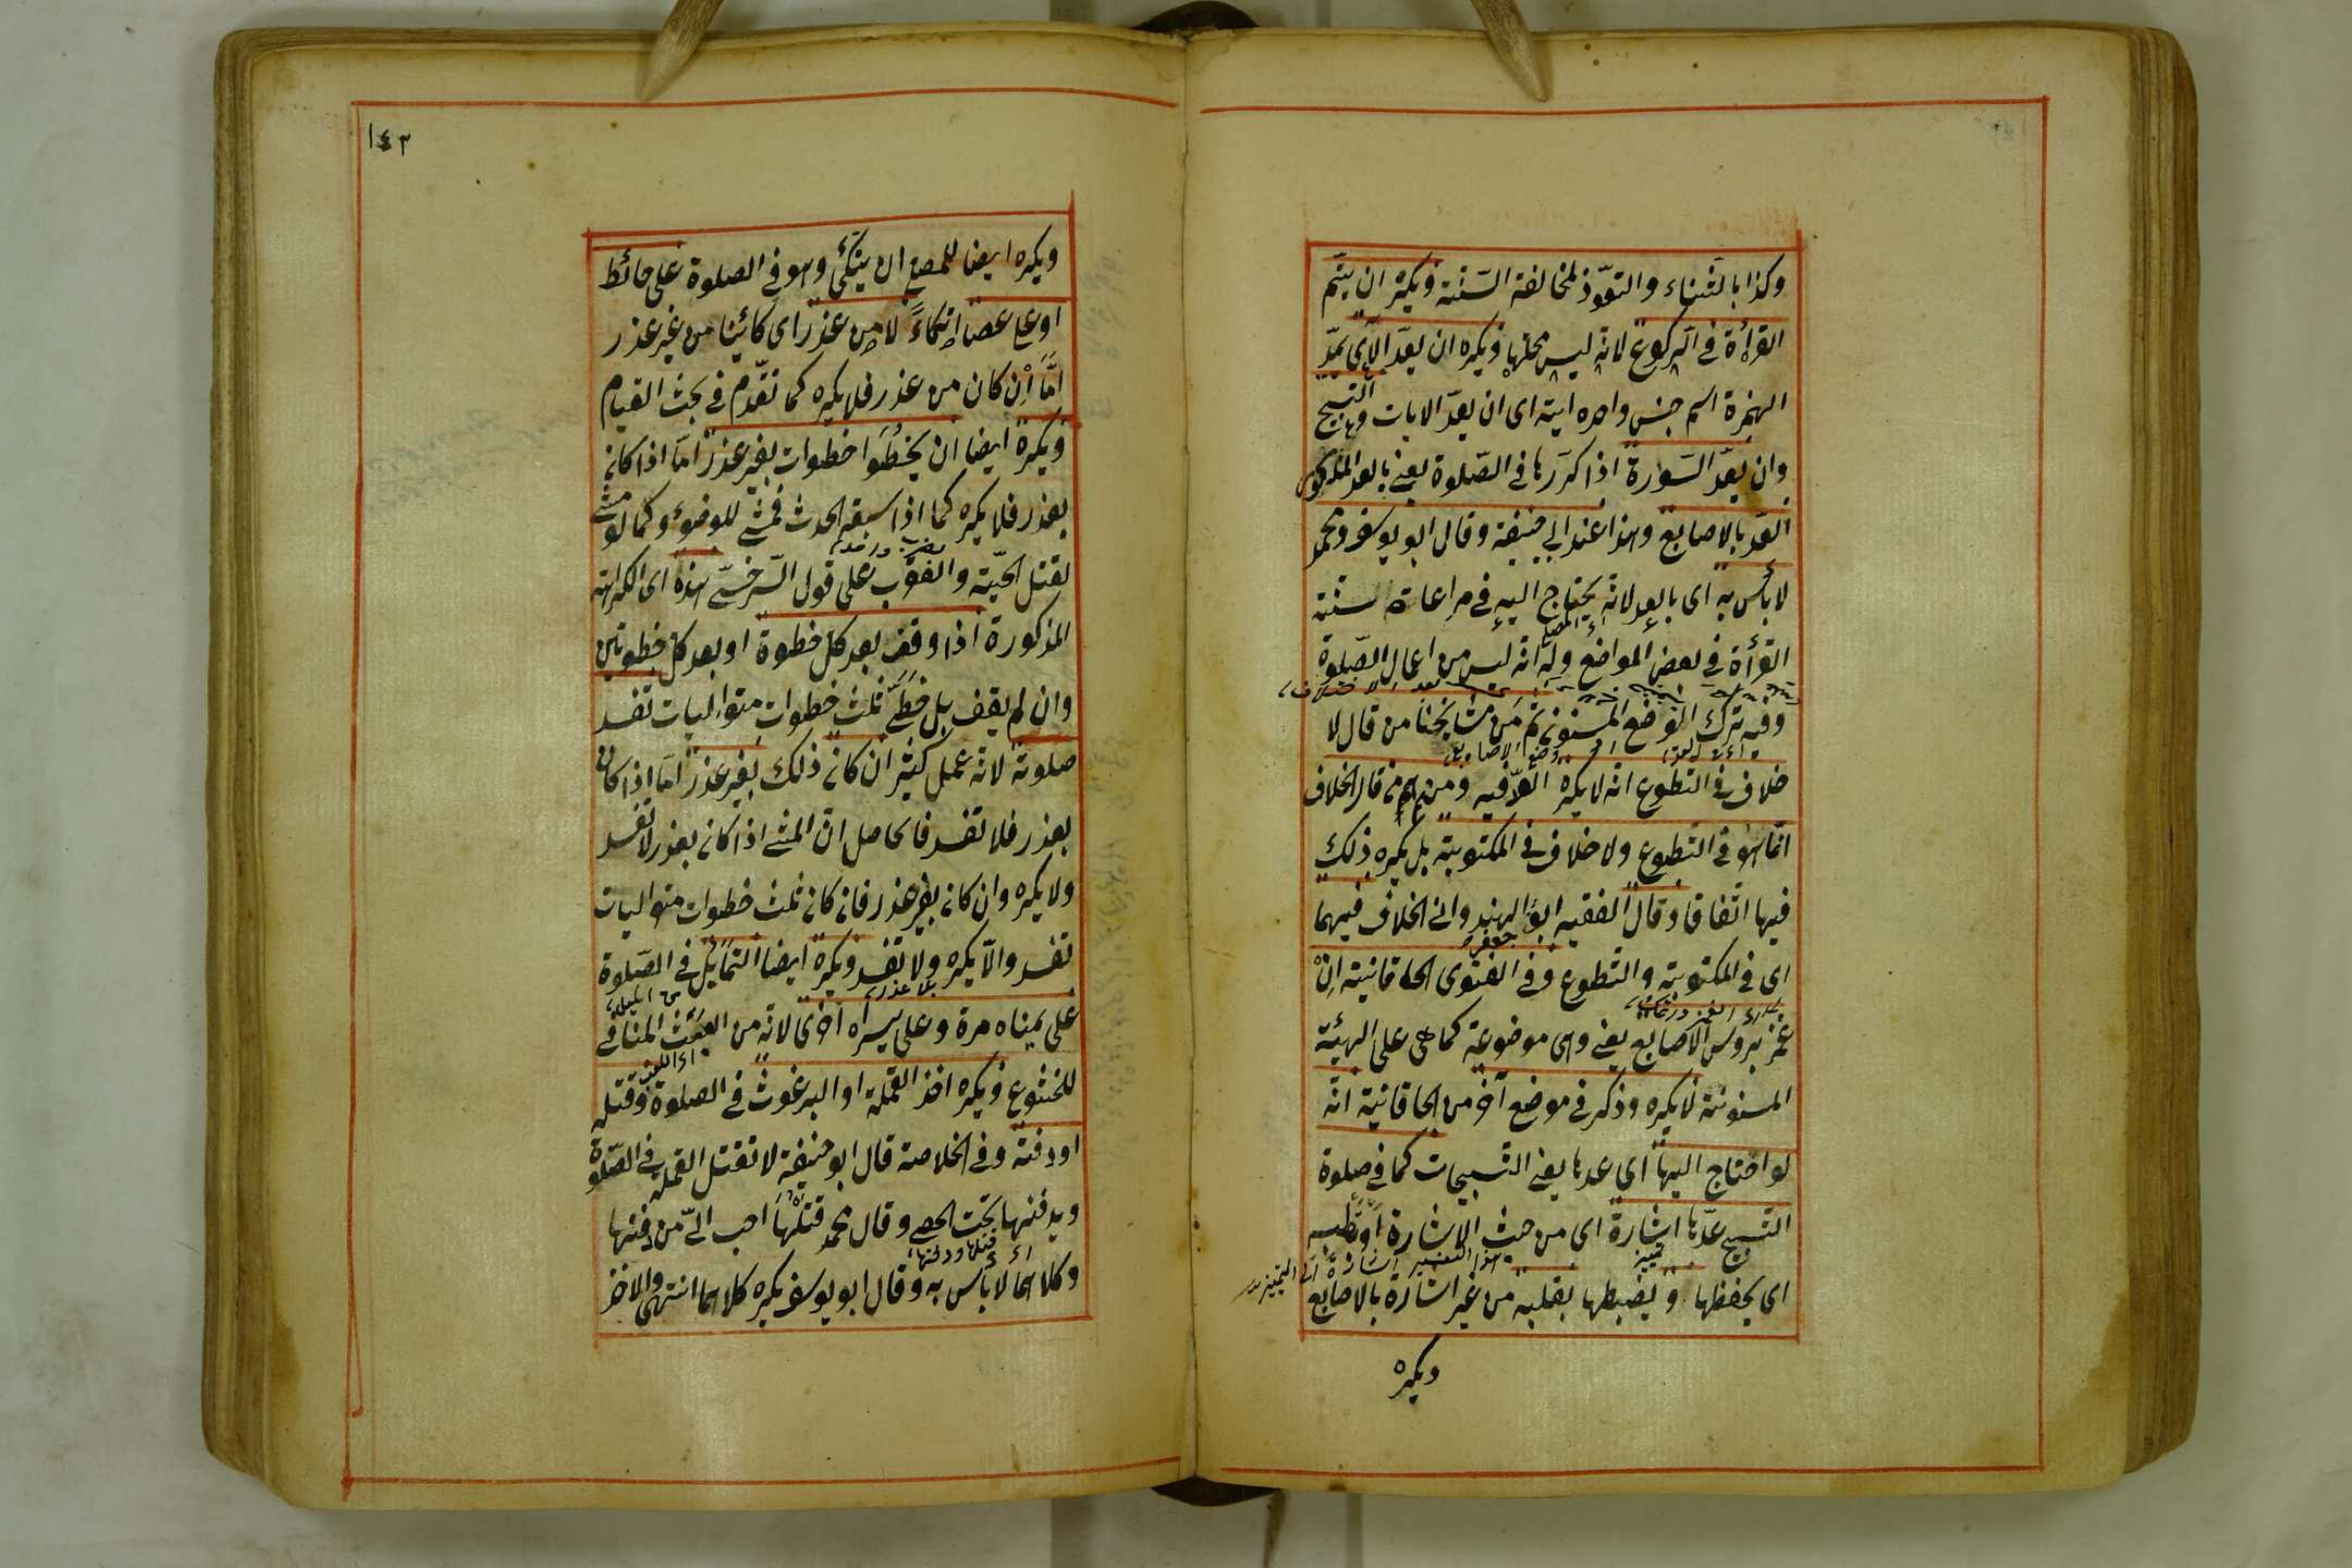 وكذا بالثناء والتعوّذ لمخالفة السّنة ويكره ان يتم
القرأة فى الركوع لانه ليس محلها ويكره ان يعدّ الآى بمدّ
الهمزة اسم جنس واحده اية اى ان يعدّ الايات والتسبيح
وان يعدّ السّورة اذا كرّرها فى الصّلوة يعنى بالعد المذكور
العدّ بالاصابع وهذا عند ابى حنيفة وقال ابو يوسف ومحمد
لا بأس به اى بالعد لانه يحتاج اليه فى مراعات سنة
القرأة فى بعض المواضع وله انه ليس من اعمال الصّلوة
وفيه ترك الوضع المسنون ثم من مشايخنا من قال لا
خلاف فى التطوع انه لا يكره العدّ فيه ومنهم من قال الخلاف
انما هو فى التطوع ولا خلاف فى المكتوبة بل يكره ذلك
فيها اتفاقا وقال الفقيه ابو جعفر الهندوانى الخلاف فيهما
اى فى المكتوبة والتطوع وفى الفتوى الخاقانية ان
غمز برؤس الاصابع يعنى وهى موضوعة كما هى على الهيئة
المسنونة لا يكره وذكر فى موضع آخر من الخاقانية انه
لو احتاج اليها اى عدها يعنى التسبيحات كما فى صلوة
التسبيح عدّها اشارة اى من حيث الاشارة او بقلبه
اى يحفظها ويضبطها بقلبه من غير اشارة بالاصابع
ويكره
١٤٣
ويكره ايضا للمصلى ان يتكئ وهو فى الصلوة على حائط
او على عصا اتكاءً لا من عذر اى كائنا من غير عذر
امّا ان كان من عذر فلا يكره كما تقدّم فى بحث القيام
ويكره ايضا ان يخطوا خطوات بغير عذر امّا اذا كان
بعذر فلا يكره كما اذا سبقه الحدث فمشى للوضوء وكما لو مشى
لقتل الحيّة والعقرب على قول السّرخسى هذه اى الكراهة
المذكورة اذا وقف بعد كل خطوة او بعد كل خطوتين
وان لم يقف بل خطى ثلث خطوات متواليات تفسد
صلوته لانه عمل كثير ان كان ذلك بغير عذر امّا اذا كان
بعذر فلا تفسد فالحاصل ان المشى اذا كان بعذر لا تفسد
ولا يكره وان كان بغير عذر فان كان ثلث خطوات متواليات
تفسد والّا يكره ولا تفسد ويكره ايضا التمايل فى الصّلوة
بلا عذر
على يمناه مرة وعلى يسراه اخرى لانه من العبث المنافى
للخشوع ويكره اخذ القملة او البرغوث فى الصلوة وقتله
او دفنه وفى الخلاصة قال ابو حنيفة لا تقتل القملة فى الصّلوة
ويدفنها تحت الحصى وقال محمد قتلها احب الىّ من دفنها
اى قتلها ودفنها
وكلاهما لا بأس به وقال ابو يوسف يكره كلاهما انتهى والاخذ